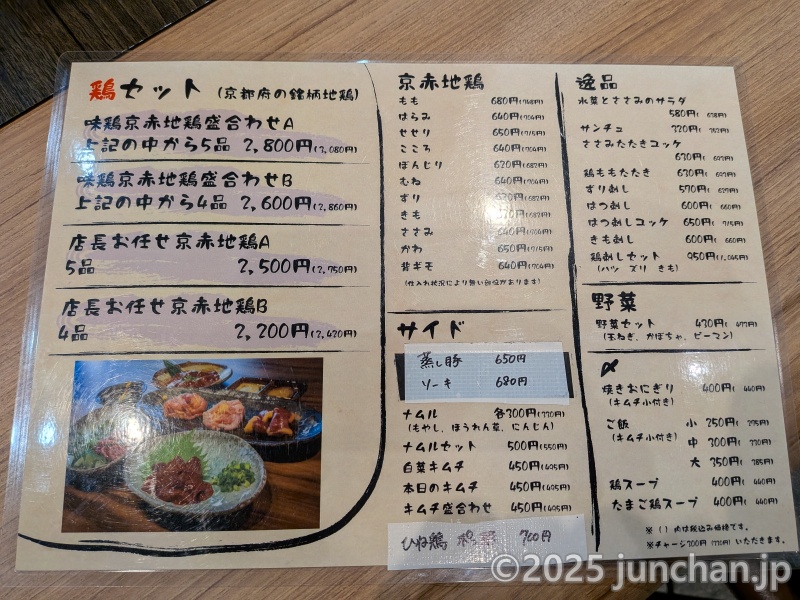 鶏セット (京都府の銘柄地鶏)
味鶏京赤地鶏盛合わせA
上記の中から5品 2,800円(3,080円)
味鶏京赤地鶏盛合わせB
上記の中から4品 2,600円(2,860円)
店長お任せ京赤地鶏A
5品 2,500円(2,750円)
店長お任せ京赤地鶏B
4品 2,200円(2,420円)
京赤地鶏
もも 680円(748円)
はらみ 640円(704円)
せせり 650円(715円)
こころ 640円(704円)
ぼんじり 620円(682円)
むね 640円(704円)
ずり 620円(682円)
きも 620円(682円)
ささみ 640円(704円)
かわ 650円(715円)
背ギモ 640円(704円)
(仕入れ状況により無い部位があります)
サイド
蒸し豚 650円
ソーキ 680円
ナムル 各300円(330円)
(もやし、ほうれん草、にんじん)
ナムルセット 500円(550円)
白菜キムチ 450円(495円)
本日のキムチ 450円(495円)
キムチ盛合わせ 450円(495円)
ひね鶏 ポン酢 700円
逸品
水菜とささみのサラダ
580円( 638円)
サンチュ 320円( 352円)
ささみたたきユッケ
630円( 693円)
鶏ももたたき 630円( 693円)
ずり刺し 570円( 627円)
はつ刺し 600円( 660円)
はつ刺しユッケ 650円( 715円)
きも刺し 600円( 660円)
鶏刺しセット 950円(1,045円)
(ハツ ズリ きも)
野菜
野菜セット 430円( 473円)
(玉ねぎ、かぼちゃ、ピーマン)
〆
焼きおにぎり 400円( 440円)
(キムチ小付き)
ご飯 小 250円( 275円)
(キムチ小付き) 中 300円( 330円)
大 350円( 385円)
鶏スープ 400円( 440円)
たまご鶏スープ 400円( 440円)
※( )内は税込み価格です。
※チャージ300円(330円)いただきます。
©2025 junchan.jp